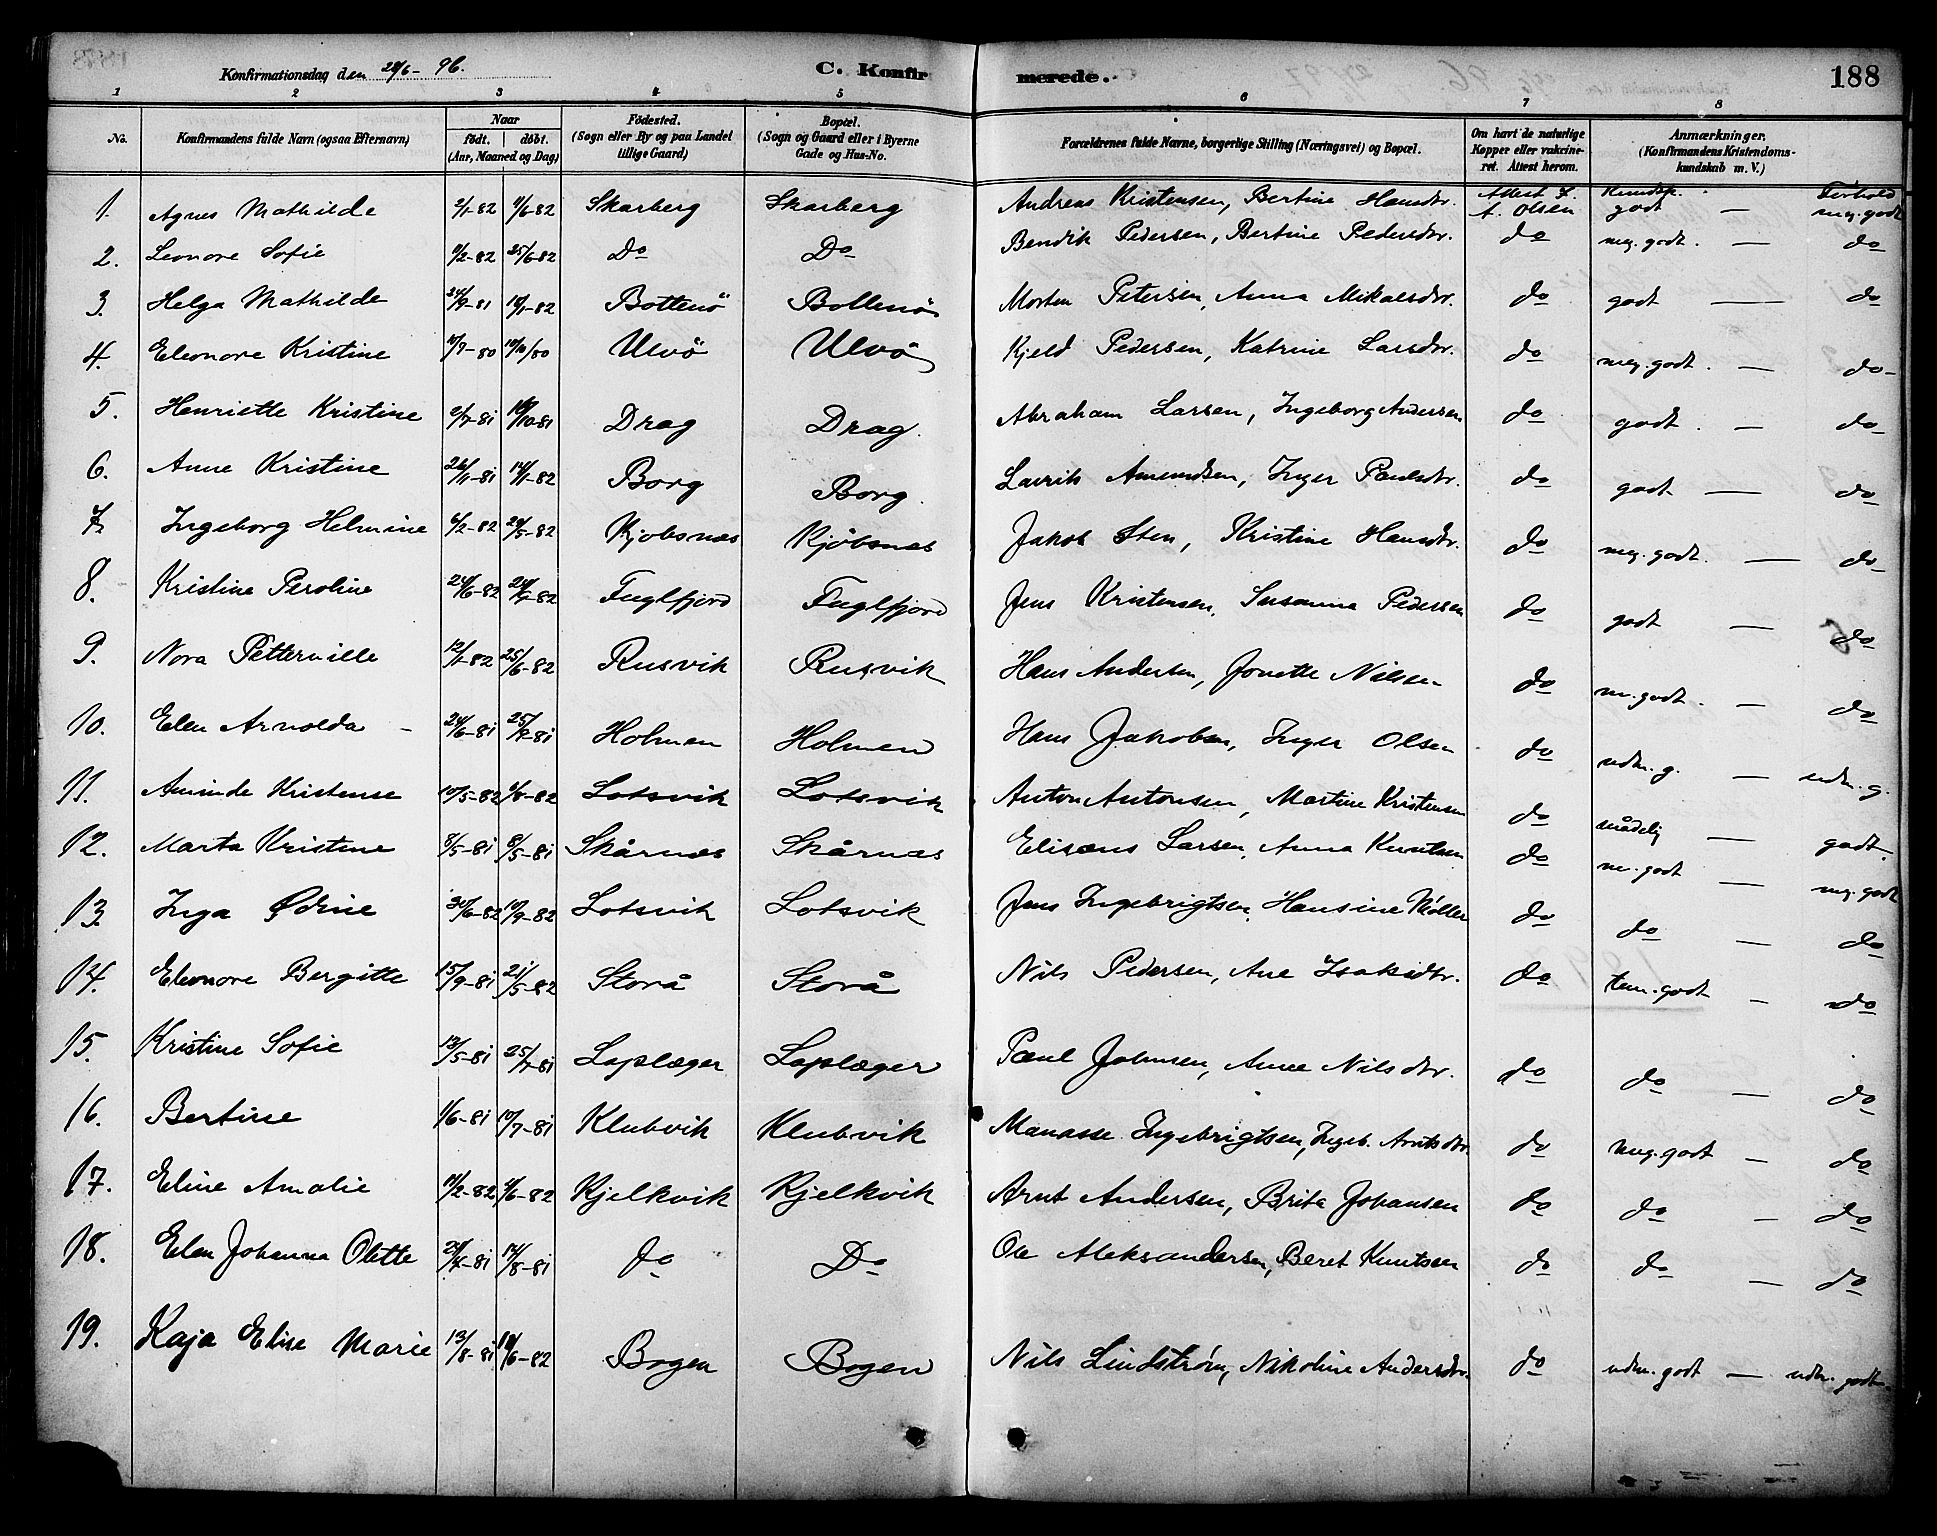 Konfirmationsdag den 28/6 - 96. C. Konfirmerede. 188
1 2 3 4 5 6 7 8
No. Konfirmandens fulde Navn (ogsaa Efternavn) Naar født. døbt. (Aar, Maaned og Dag) Fødested. (Sogn eller By og paa Landet tillige Gaard) Bopæl. (Sogn og Gaard eller i Byerne Gade og Hus-No. Forældrenes fulde Navne, borgerlige Stilling (Næringsvei) og Bopæl. Om havt de naturlige Kopper eller vaccineret. Attest herom. Anmærkninger. (Konfirmandens Kristendomskundskab m. V.)
Kundsk. Forhold
1. Agnes Mathilde 2/1-82 4/6-82 Skarberg Skarberg Andreas Kristensen, Bertine Hansdtr. Attest f. A. Olsen godt — meg. godt
2. Leonore Sofie 9/2-82 25/6-82 Do Do Bendik Pedersen, Bertine Pedersdtr. do meg. godt. — do
3. Helga Mathilde 24/9-81 -82 Bottenö Bottenö Morten Petersen, Anna Mikalsdtr. do godt — do
4. Eleonore Kristine /7-80 10/10/80 Ulvö Ulvö Kjeld Pedersen, Katrine Larsdtr. do meg. godt. — do
5. Henriette Kristine 2/7-81 /10-81 Drag Drag. Abraham Larsen, Ingeborg Andersen do godt. — do
6. Anne Kristine 26/11-81 14/1-82 Borg Borg. Lavrits Amundsen, Inger Paulsdtr. do godt — do
7. Ingeborg Helmine 4/2-82 29/5-82 Kjobsnæs Kjöbsnæs Jakob Sten, Kristine Hansdtr. do meg. godt. — do
8. Kristine Peroline 24/6-82 -82 Fuglfjord Fuglfjord Jens Kristensen, Susanna Pedersen do godt — do
9. Nora Petterville 12/1-82 25/6-82 Rusvik Rusvik Hans Andersen, Jonette Nilsen do m. godt. — do
10. Elen Arnolda - 24/6-81 25/-81 Holmen Holmen Hans Jakobsen, Inger Olsen do udm. g. — udm. g.
11. Aminde Kristense 10/5-82 -82 Lotsvik Lotsvik Anton Antonsen, Martine Kristensen do mådelig — godt.
12. Marta Kristine 8/5-81 8/5-81 Skårnæs Skårnæs Elisæus Larsen, Anna Knutsen do m. godt — meg. godt
13. Inga Ødine 30/6-82 10/9-82 Lotsvik Lotsvik Jens Ingebrigtsen, Hansine Møller do do — do
14. Eleonore Bergitte 15/9-81 21/5-82 Storå Storå Nils Pedersen, Ane Isaksdtr. do tem. godt — do
15. Kristine Sofie 13/5-81 25/7-81 Laplæger Laplæger Paul Johnsen, Anne Nilsdtr. do do — do
16. Bertine 1/6-81 10/7-81 Klubvik Klubvik Manasse Ingebrigtsen, Ingeb. Arntsdtr. do meg. godt — do
17. Eline Amalie 11/2-82 4/6-82 Kjelkvik Kjelkvik Arnt Andersen, Brita Johansen do do — do
18. Elen Johanna Olette -81 14/8-81 do Do Ole Aleksandersen, Beret Knutsen do do — do
19. Kaja Elise Marie 13/8-81 18/6-82 Bogen Bogen Nils Lindstrøm, Nikoline Andersdtr. do udm. godt — udm. godt.